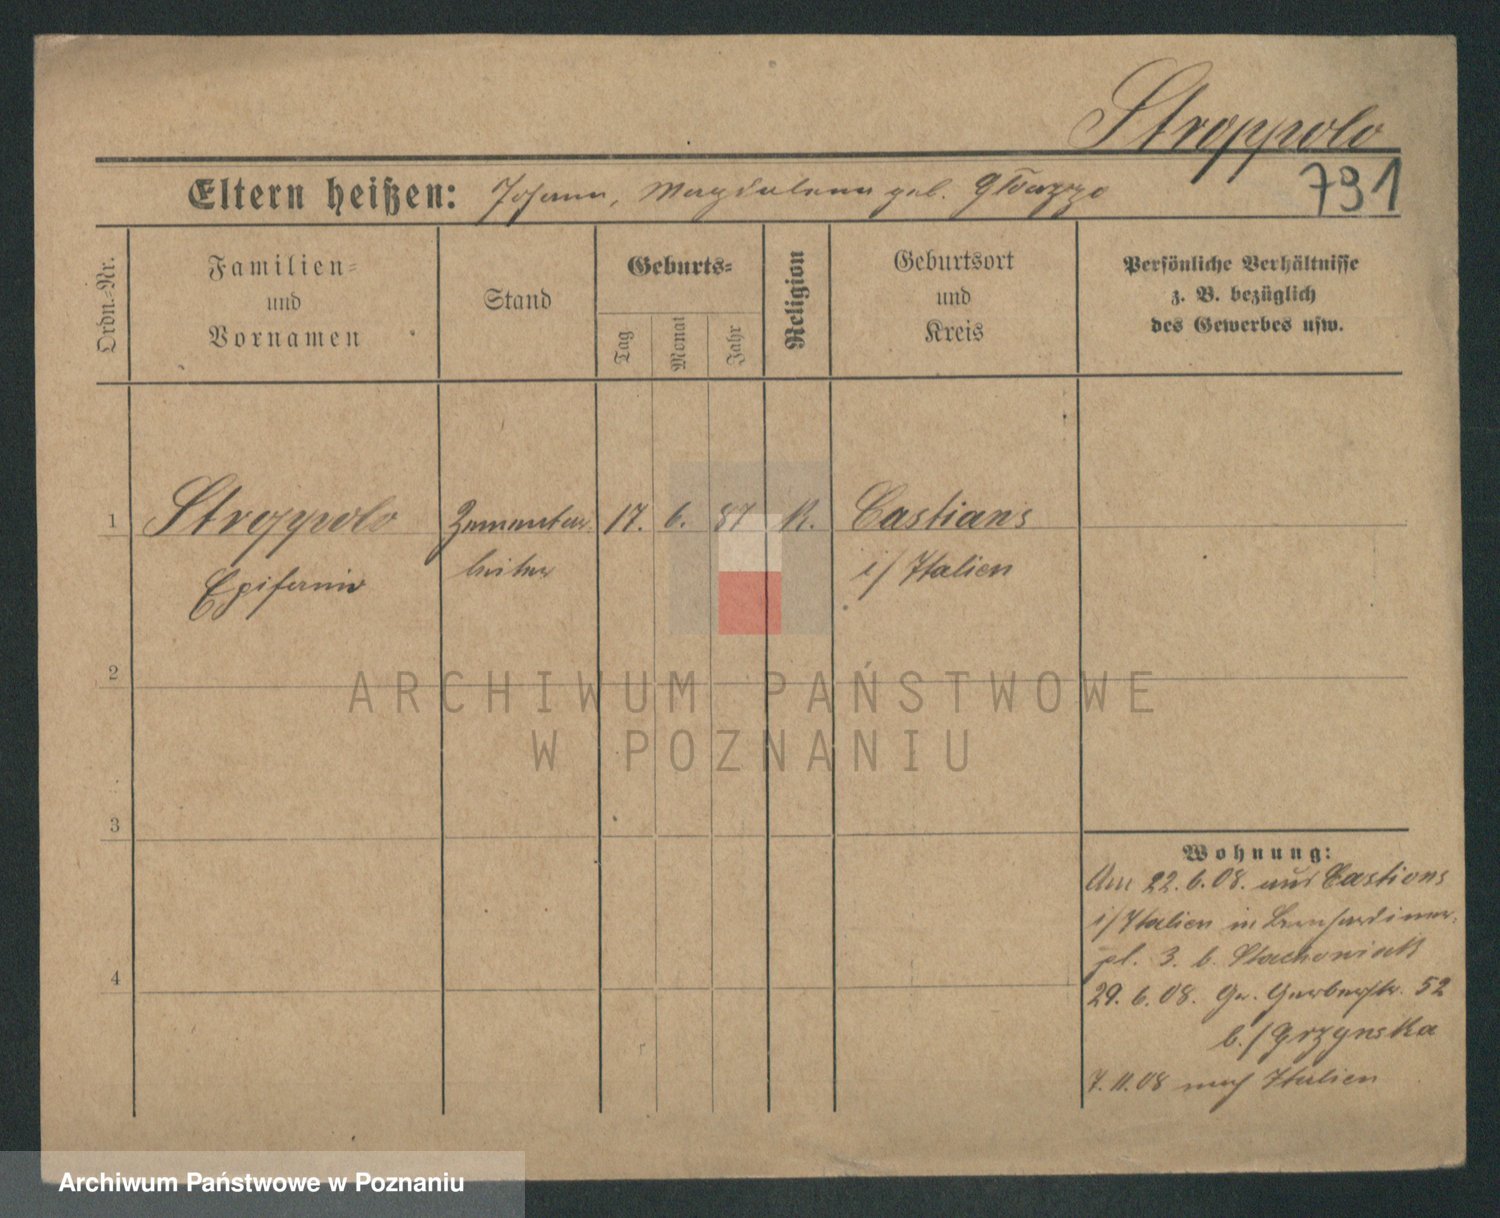 Stroppolo
Eltern heißen: Johann, Magdalena geb.
791
Ordn.-Nr.
Familien-
und
Vornamen
Stand
Geburts-
Tag
Monat
Jahr
Religion
Geburtsort
und
Kreis
Persönliche Verhältnisse
z. B. bezüglich
des Gewerbes usw.
1 Stroppolo Zementar- 17. 6. 87 R. Castians
Epifanio beiter i/ Italien
2
3
4
Wohnung:
Am 22.6.08. aus Castions
i/Italien in Bernhardiner-
pl. 3. b. Stachowiak
29.6.08. Gr. Gerberstr. 52
b./Grzynska
7.11.08 nach Italien
ARCHIWUM PAŃSTWOWE
W POZNANIU
Archiwum Państwowe w Poznaniu